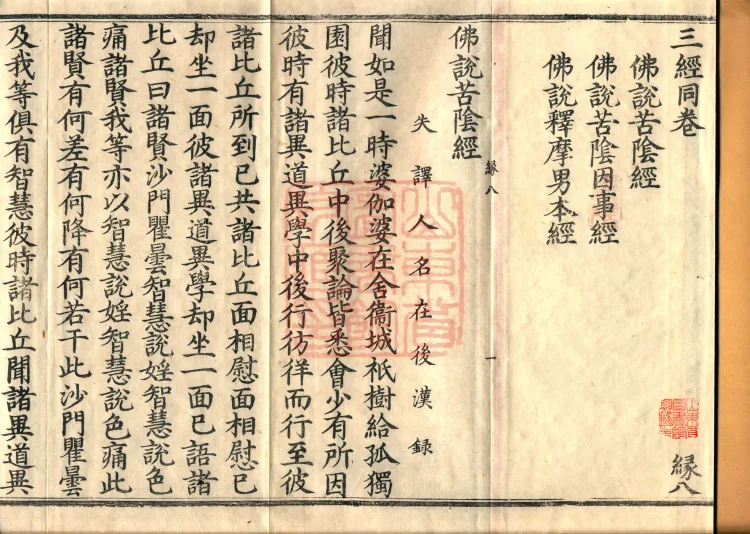 三經同卷
縁八
佛說苦陰經
佛說苦陰因事經
佛說釋摩男本經
縁八
一
佛說苦陰經
失譯人名在後漢録
聞如是一時婆伽婆在舍衞城祇樹給孤獨
園彼時諸比丘中後聚論皆悉會少有所因
彼時有諸異道異學中後行彷徉而行至彼
諸比丘所到已共諸比丘面相慰面相慰已
却坐一面彼諸異道異學却坐一面已語諸
比丘曰諸賢沙門瞿曇智慧說婬智慧說色
痛諸賢我等亦以智慧說婬智慧說色痛此
諸賢有何差有何降有何若干此沙門瞿曇
及我等俱有智慧彼時諸比丘聞諸異道異